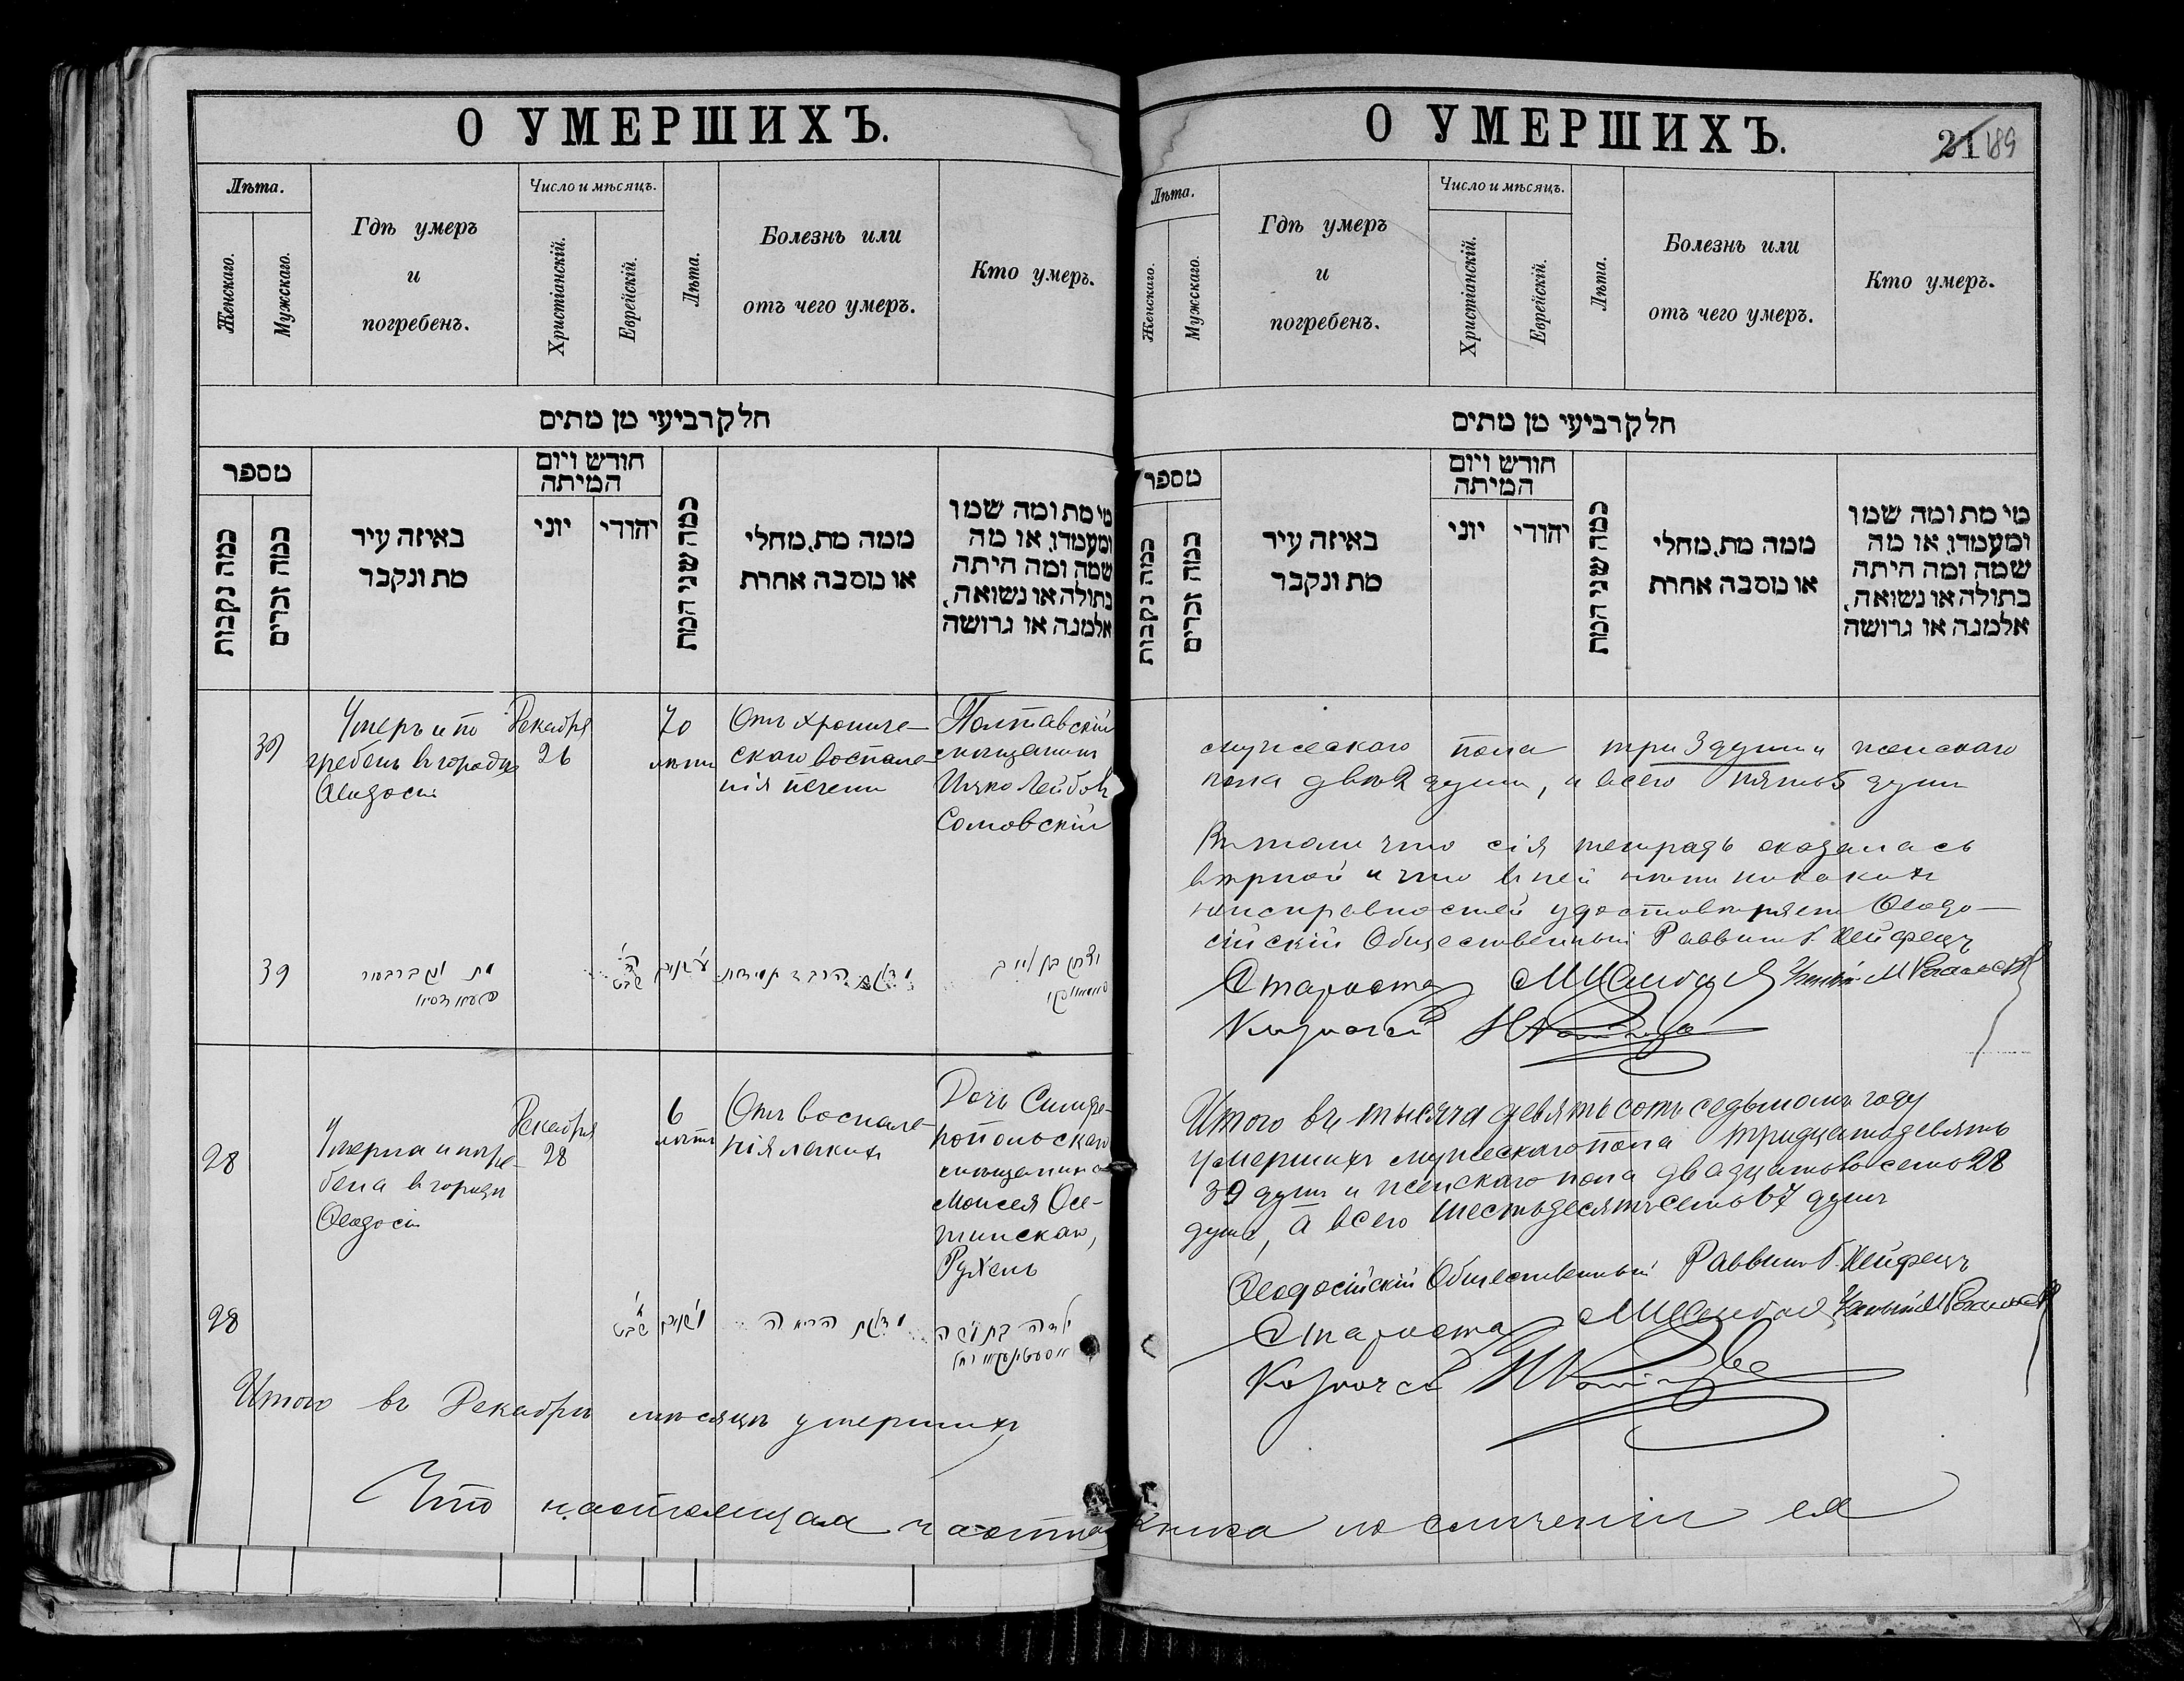 О УМЕРШИХЪ.
Лѣта.
Женскаго.
Мужскаго.
Гдѣ умеръ
и
погребенъ.
Число и мѣсяцъ.
Христіанскій.
Еврейскій.
Лѣта.
Болезнь или
отъ чего умеръ.
Кто умеръ.
חלק רביעי מן מתים
מספר
כמה נקבות
כמה זכרים
באיזה עיר
מת ונקבר
חודש ויום
המיתה
יוני
יהודי
כמה שני המת
ממה מת, מחלי
או מסבה אחרת
מי מת ומה שמו
ומעמדו, או מה
שמה ומה היתה
בתולה או נשואה,
אלמנה או גרושה
39
Умеръ и по
гребенъ въ городѣ
Ѳеодосіи
Декабря
26
70
лѣтъ
Отъ хрониче-
скаго воспале-
нія печени
Полтавскій
мѣщанинъ
Ицко Лейбовъ
Сомовскій
39
28
Умерла и погре-
бена въ городѣ
Ѳеодосіи
Декабря
28
6
лѣтъ
Отъ воспале-
нія легкихъ
Дочь Симфе-
ропольскаго
мѣщанина
Моисея Осе-
тинскаго,
Рухель
28
Итого въ Декабрѣ мѣсяцѣ умершихъ
Что настоящая
О УМЕРШИХЪ.
21 189
Лѣта.
Женскаго.
Мужскаго.
Гдѣ умеръ
и
погребенъ.
Число и мѣсяцъ.
Христіанскій.
Еврейскій.
Лѣта.
Болезнь или
отъ чего умеръ.
Кто умеръ.
חלק רביעי מן מתים
מספר
כמה נקבות
כמה זכרים
באיזה עיר
מת ונקבר
חודש ויום
המיתה
יוני
יהודי
כמה שני המת
ממה מת, מחלי
או מסבה אחרת
מי מת ומה שמו
ומעמדו, או מה
שמה ומה היתה
בתולה או נשואה,
אלמנה או גרושה
мужескаго пола три 3 души и женскаго
пола двѣ 2 души, и всего пять 5 душъ
Въ томъ что сія тетрадь оказалась
вѣрной и что въ ней нѣтъ никакихъ
неисправностей удостовѣряетъ Ѳеодо-
сійскій Общественный Раввинъ Г. Хейфецъ
Староста
Казначей
Итого въ тысяча девятьсотъ седьмомъ году
умершихъ мужескаго пола тридцать девять
39 душъ и женскаго пола двадцать восемь 28
душъ, а всего шестьдесятъ семь 67 душъ
Ѳеодосійскій Общественный Раввинъ Г. Хейфецъ
Староста
Казначей
книга по сличеніи ея